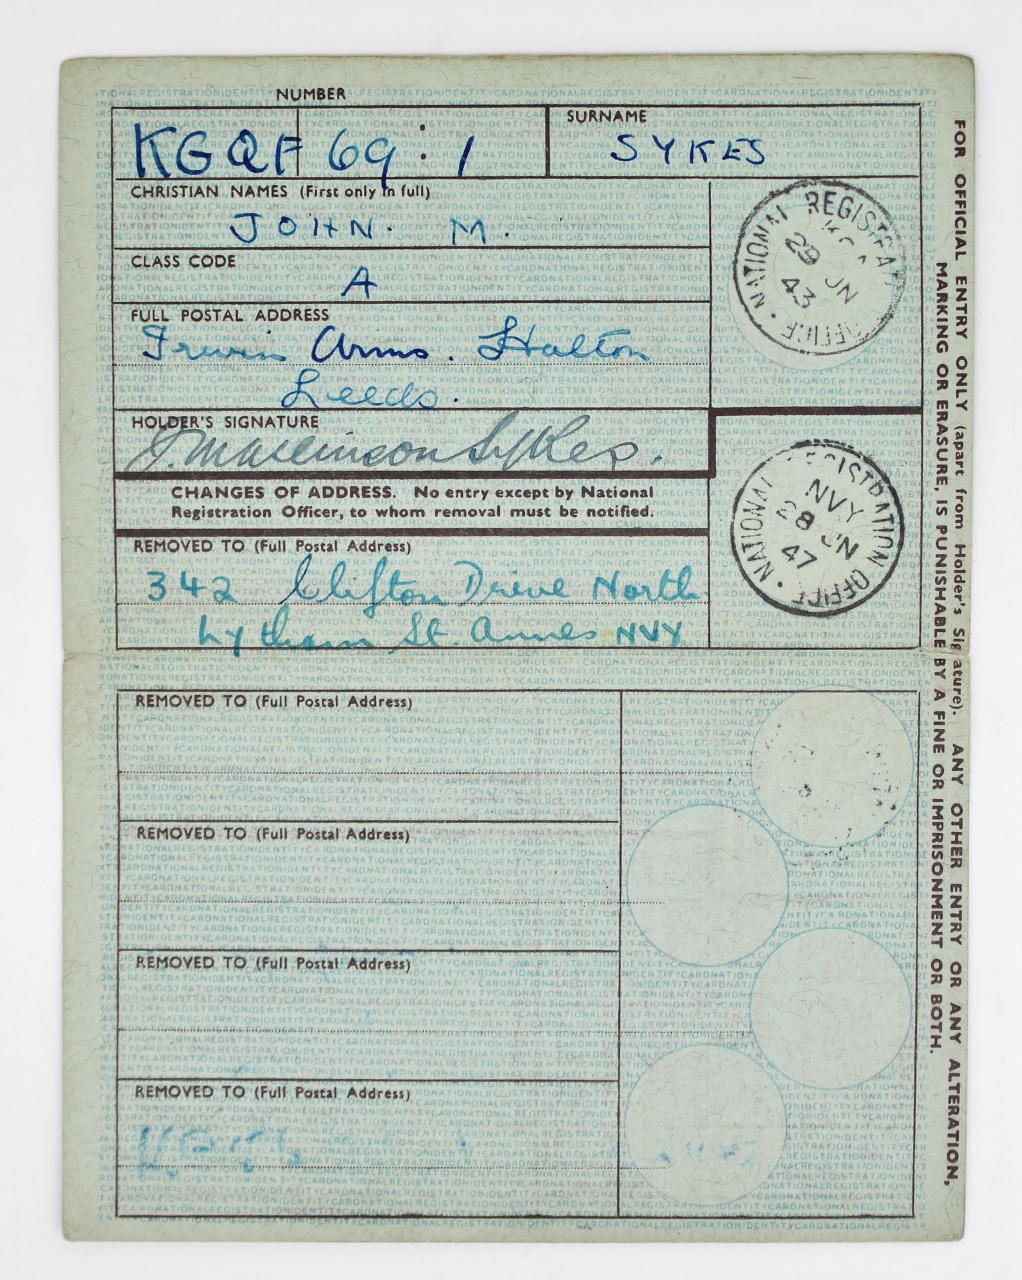 NUMBER
KGQF 69 : 1
SURNAME
SYKES
CHRISTIAN NAMES (First only in full)
JOHN. M.
CLASS CODE
A
FULL POSTAL ADDRESS
Irwin Arms. Halton
Leeds.
HOLDER'S SIGNATURE
J. Mallinson Sykes.
NATIONAL REGISTRAT OFFICE
29 JN
43
CHANGES OF ADDRESS. No entry except by National
Registration Officer, to whom removal must be notified.
REMOVED TO (Full Postal Address)
342 Clifton Drive North
Lytham St. Annes NVY
NATIONAL REGISTRATION OFFICE
NVY
28 JN
47
REMOVED TO (Full Postal Address)
REMOVED TO (Full Postal Address)
REMOVED TO (Full Postal Address)
REMOVED TO (Full Postal Address)
FOR OFFICIAL ENTRY ONLY (apart from Holder's Signature). ANY OTHER ENTRY OR ANY ALTERATION,
MARKING OR ERASURE, IS PUNISHABLE BY A FINE OR IMPRISONMENT OR BOTH.